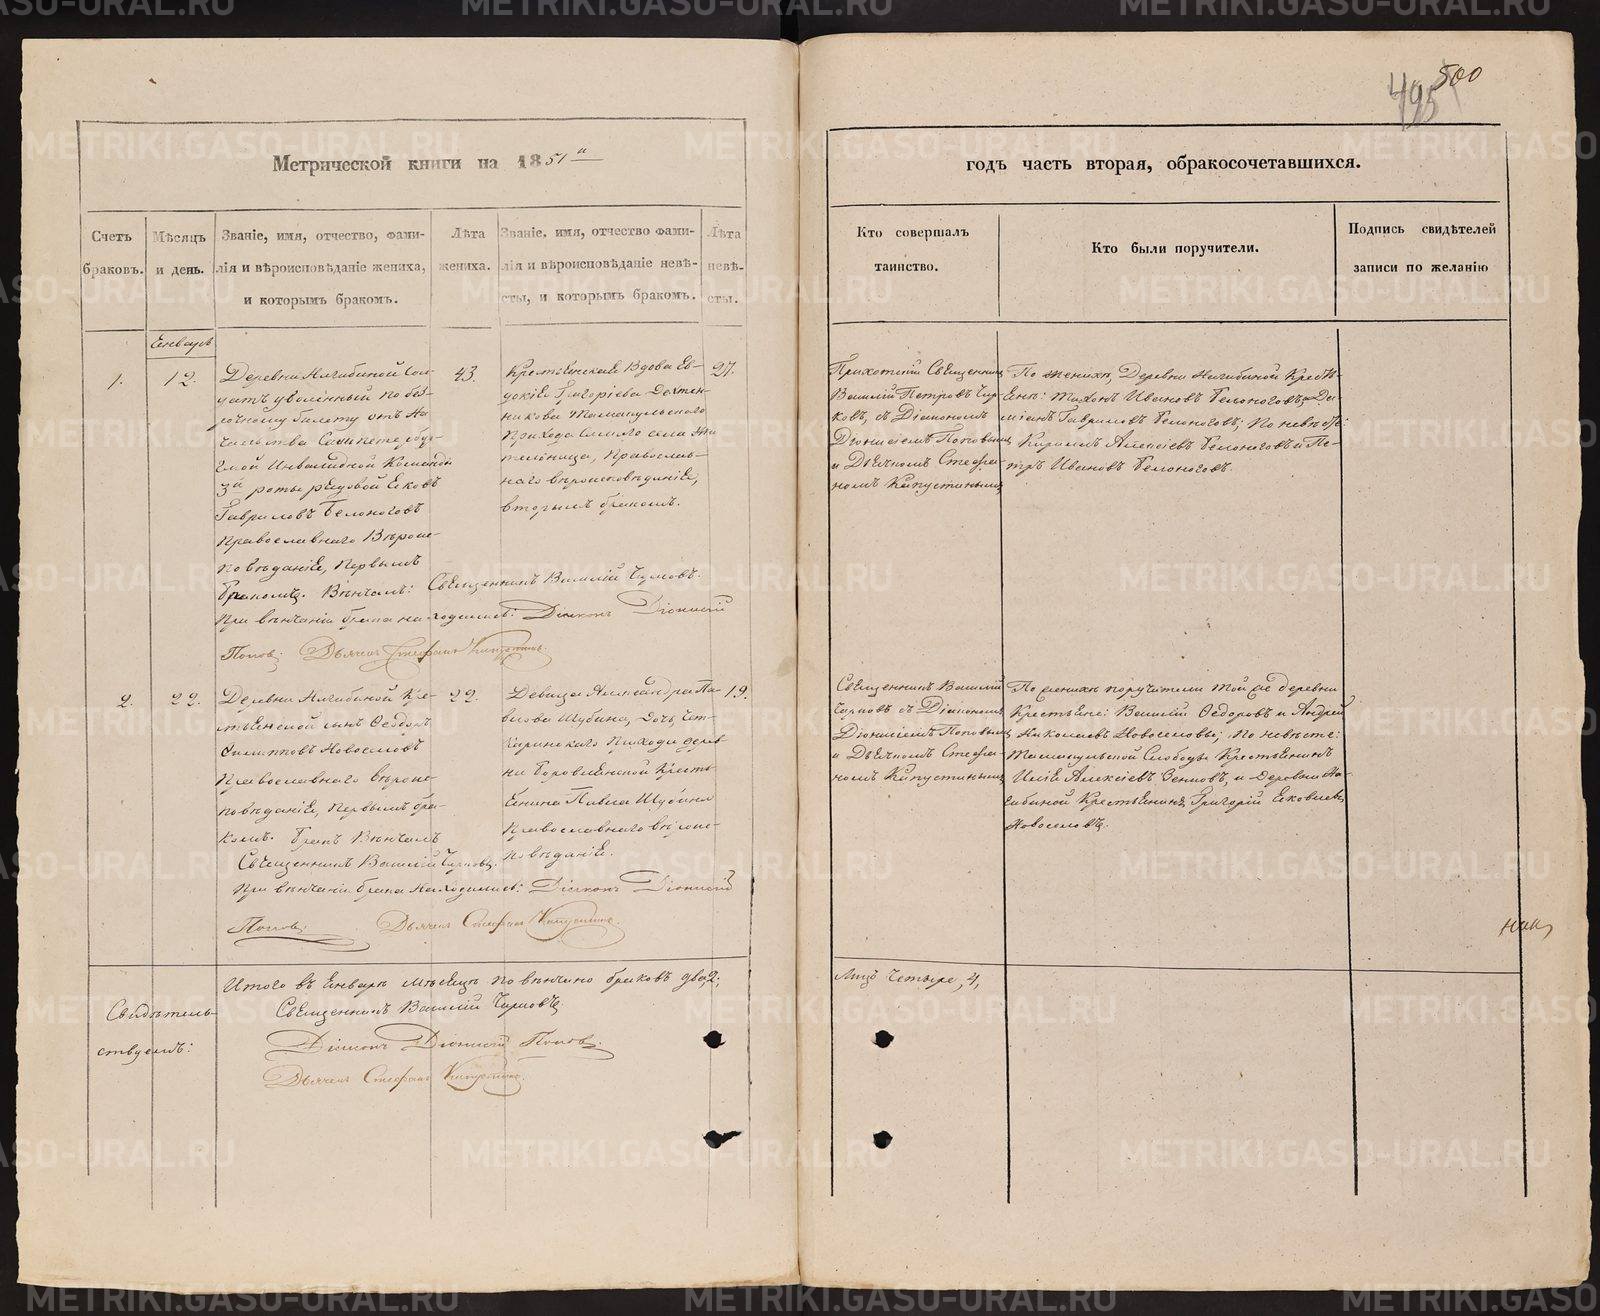 500
495
Метрической книги на 1851й
годъ часть вторая, обракосочетавшихся.
Счетъ
браковъ.
Мѣсяцъ
и день.
Званіе, имя, отчество, фами-
лія и вѣроисповѣданіе жениха,
и которымъ бракомъ.
Лѣта
жениха.
Званіе, имя, отчество фами-
лія и вѣроисповѣданіе невѣ-
сты, и которымъ бракомъ.
Лѣта
невѣ-
сты.
Кто совершалъ
таинство.
Кто были поручители.
Подпись свидѣтелей
записи по желанію
Январь
1.
12.
Деревни Нагибиной Сол-
датъ уволенный по без-
срочному билету отъ На-
чальства
Инвалидной Команды
3й роты рядовой Яковъ
Гавриловъ Белоноговъ
Православнаго Вѣроис-
повѣданія, первымъ
бракомъ. Вѣнчалъ: Священникъ Василій Чирковъ.
При вѣнчаніи брака находились: Діаконъ Діонисій
Поповъ. Дьячекъ Стефанъ Капустинъ.
43.
Крестьянская Вдова Ев-
докія Григорьева
Тамакульского
Прихода
Православ-
наго вѣроисповѣданія,
вторымъ бракомъ.
27.
Приходскій Священникъ
Василій Петровъ Чир-
ковъ, съ Діакономъ
Діонисіемъ Поповымъ
и Дьячкомъ Стефа-
номъ Капустинымъ
По женихѣ, Деревни Нагибиной Кресть-
яне: Иванъ Белоноговъ, Да-
міанъ Гавриловъ Белоноговъ; По невѣстѣ:
Кириллъ Алексіевъ Белоноговъ и Пе-
тръ Ивановъ Белоноговъ.
2.
22.
Деревни Нагибиной Кре-
стьянской сынъ Ѳеодоръ
Филипповъ Новоселовъ
Православнаго вѣроис-
повѣданія, первымъ бра-
комъ. Бракъ Вѣнчалъ
Священникъ Василій Чирковъ.
При вѣнчаніи брака находились: Діаконъ Діонисій
Поповъ. Дьячекъ Стефанъ Капустинъ.
22.
Девица Александра Па-
влова Шубина, дочь
Прихода дерев-
ни Боровлянской Кресть-
янина Павла Шубина
Православнаго вѣроис-
повѣданія.
19.
Священникъ Василій
Чирковъ съ Діакономъ
Діонисіемъ Поповымъ
и Дьячкомъ Стефа-
номъ Капустинымъ
По женихѣ поручители той же деревни
Крестьяне: Василій Ѳедоровъ и Андрей
Николаевъ Новоселовы; по невѣсте:
Тамакульской Слободы Крестьянинъ
Илія Алексіевъ Зенковъ, и деревни На-
гибиной Крестьянинъ Григорій Яковлевъ
Новоселовъ.
Итого въ Январѣ мѣсяцѣ повѣнчано браковъ два, 2;
Лицъ четыре, 4,
Свидѣтель-
ствуемъ:
Священникъ Василій Чирковъ
Діаконъ Діонисій Поповъ.
Дьячекъ Стефанъ Капустинъ.